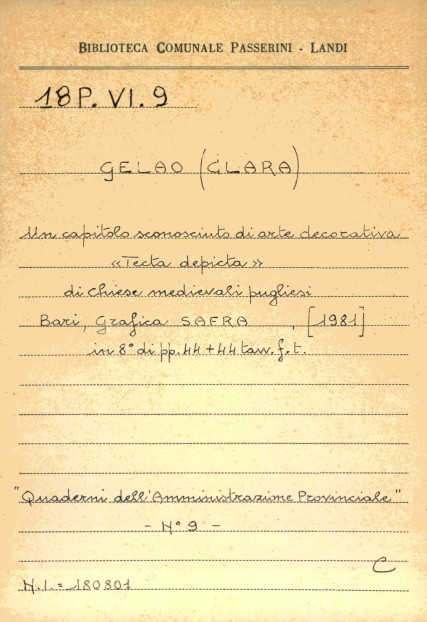 BIBLIOTECA COMUNALE PASSERINI - LANDI
18 P. VI. 9
GELAO (CLARA)
Un capitolo sconosciuto di arte decorativa
«Tecta depicta»
di chiese medievali pugliesi
Bari, Grafica SAFRA , [1981]
in 8° di pp. 44 + 44 tav. f. t.
"Quaderni dell'Amministrazione Provinciale"
- N° 9 -
C
N.I. = 180801